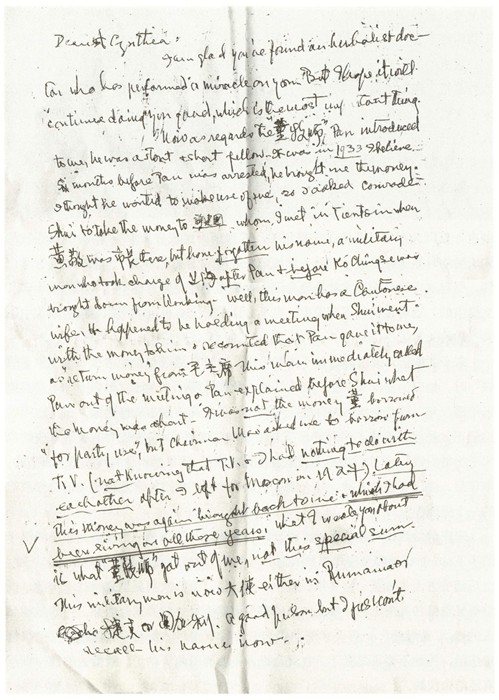 Dearest Cynthia:
I am glad you've found an herbalist doc-
tor who has performed a miracle on you. But I hope it will
"continue doing" you good, which is the most important thing.
Now as regards the "董 Pan introduced
to me, he was a stout & short fellow. It was in 1933 I believe.
months before Pan was arrested, he brought me the money.
I thought he wanted to make use of me, so I asked comrade
Shui to take the money to whom I met in Tientsin when
董 was there, but have forgotten his name, a military
man who took charge of 上海 after Pan & before Ko Chingse was
brought down from Hankong. Well, this man has a Cantonese
wife. He happened to be holding a meeting when Shui went
with the money to him & recounted that Pan gave it to me,
as return money from 毛主席 This man immediately called
Pan out of the meeting & Pan explained before Shui what
the money was about. It was not the money 董 borrowed
"for party use", but Chairman Mao asked me to borrow from
T.V. (not knowing that T.V. & I had nothing to do with
each other after I left for Moscow in 1927) Later
this money was again brought back to me & which I had
been using in all these years. What I wrote you about
is what "董 got out of me, not this special sum.
This military man is now 大使 either in Rumania or
捷克 or a good person but I just can't
recall his name now.